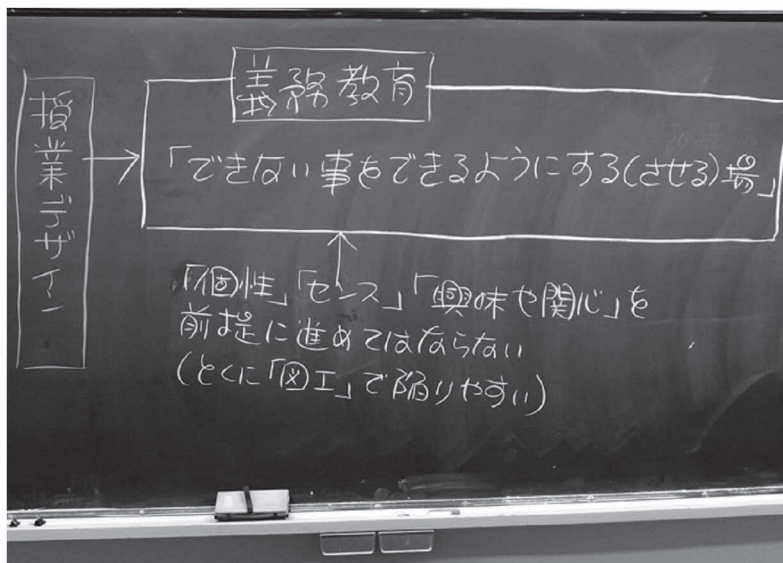 授業デザイン
義務教育
「できない事をできるようにする(させる)場」
「個性」「センス」「興味や関心」を
前提に進めてはならない
(とくに「図工」で陥りやすい)